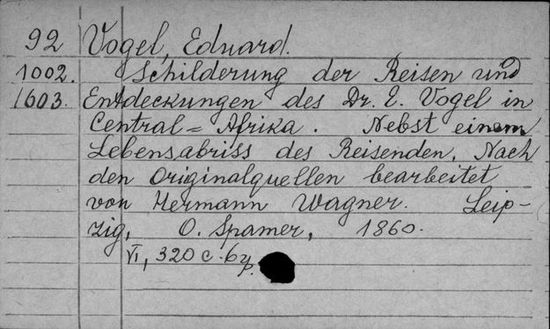 92 Vogel, Eduard.
1002. Schilderung der Reisen und
1603. Entdeckungen des Dr. E. Vogel in
Central = Afrika. Nebst einem
Lebensabriss des Reisenden. Nach
den Originalquellen bearbeitet
von Hermann Wagner. Leip-
zig, O. Spamer, 1860.
VI, 320 c.